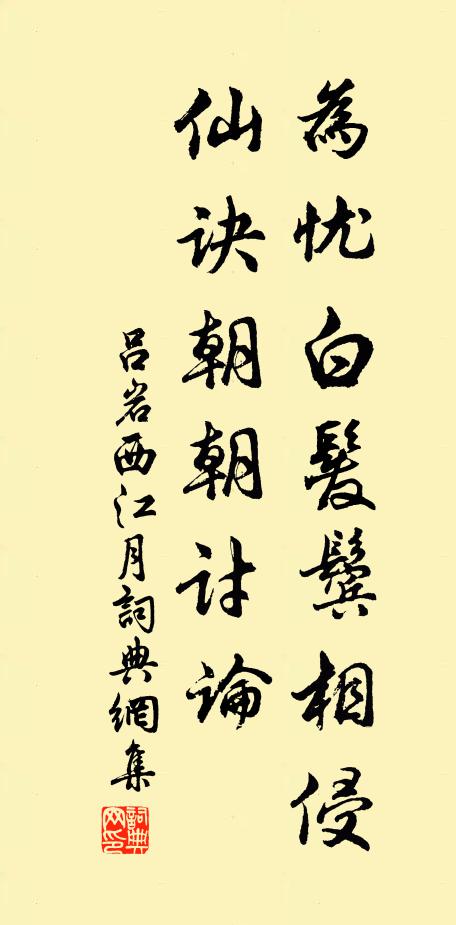 為忧白髮鬓相侵
仙诀朝朝讨論
吕岩西江月詞典網集
詞典网印